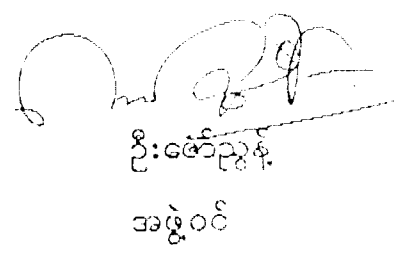 ဦးဇော်ညွန့်
အဖွဲ့ဝင်